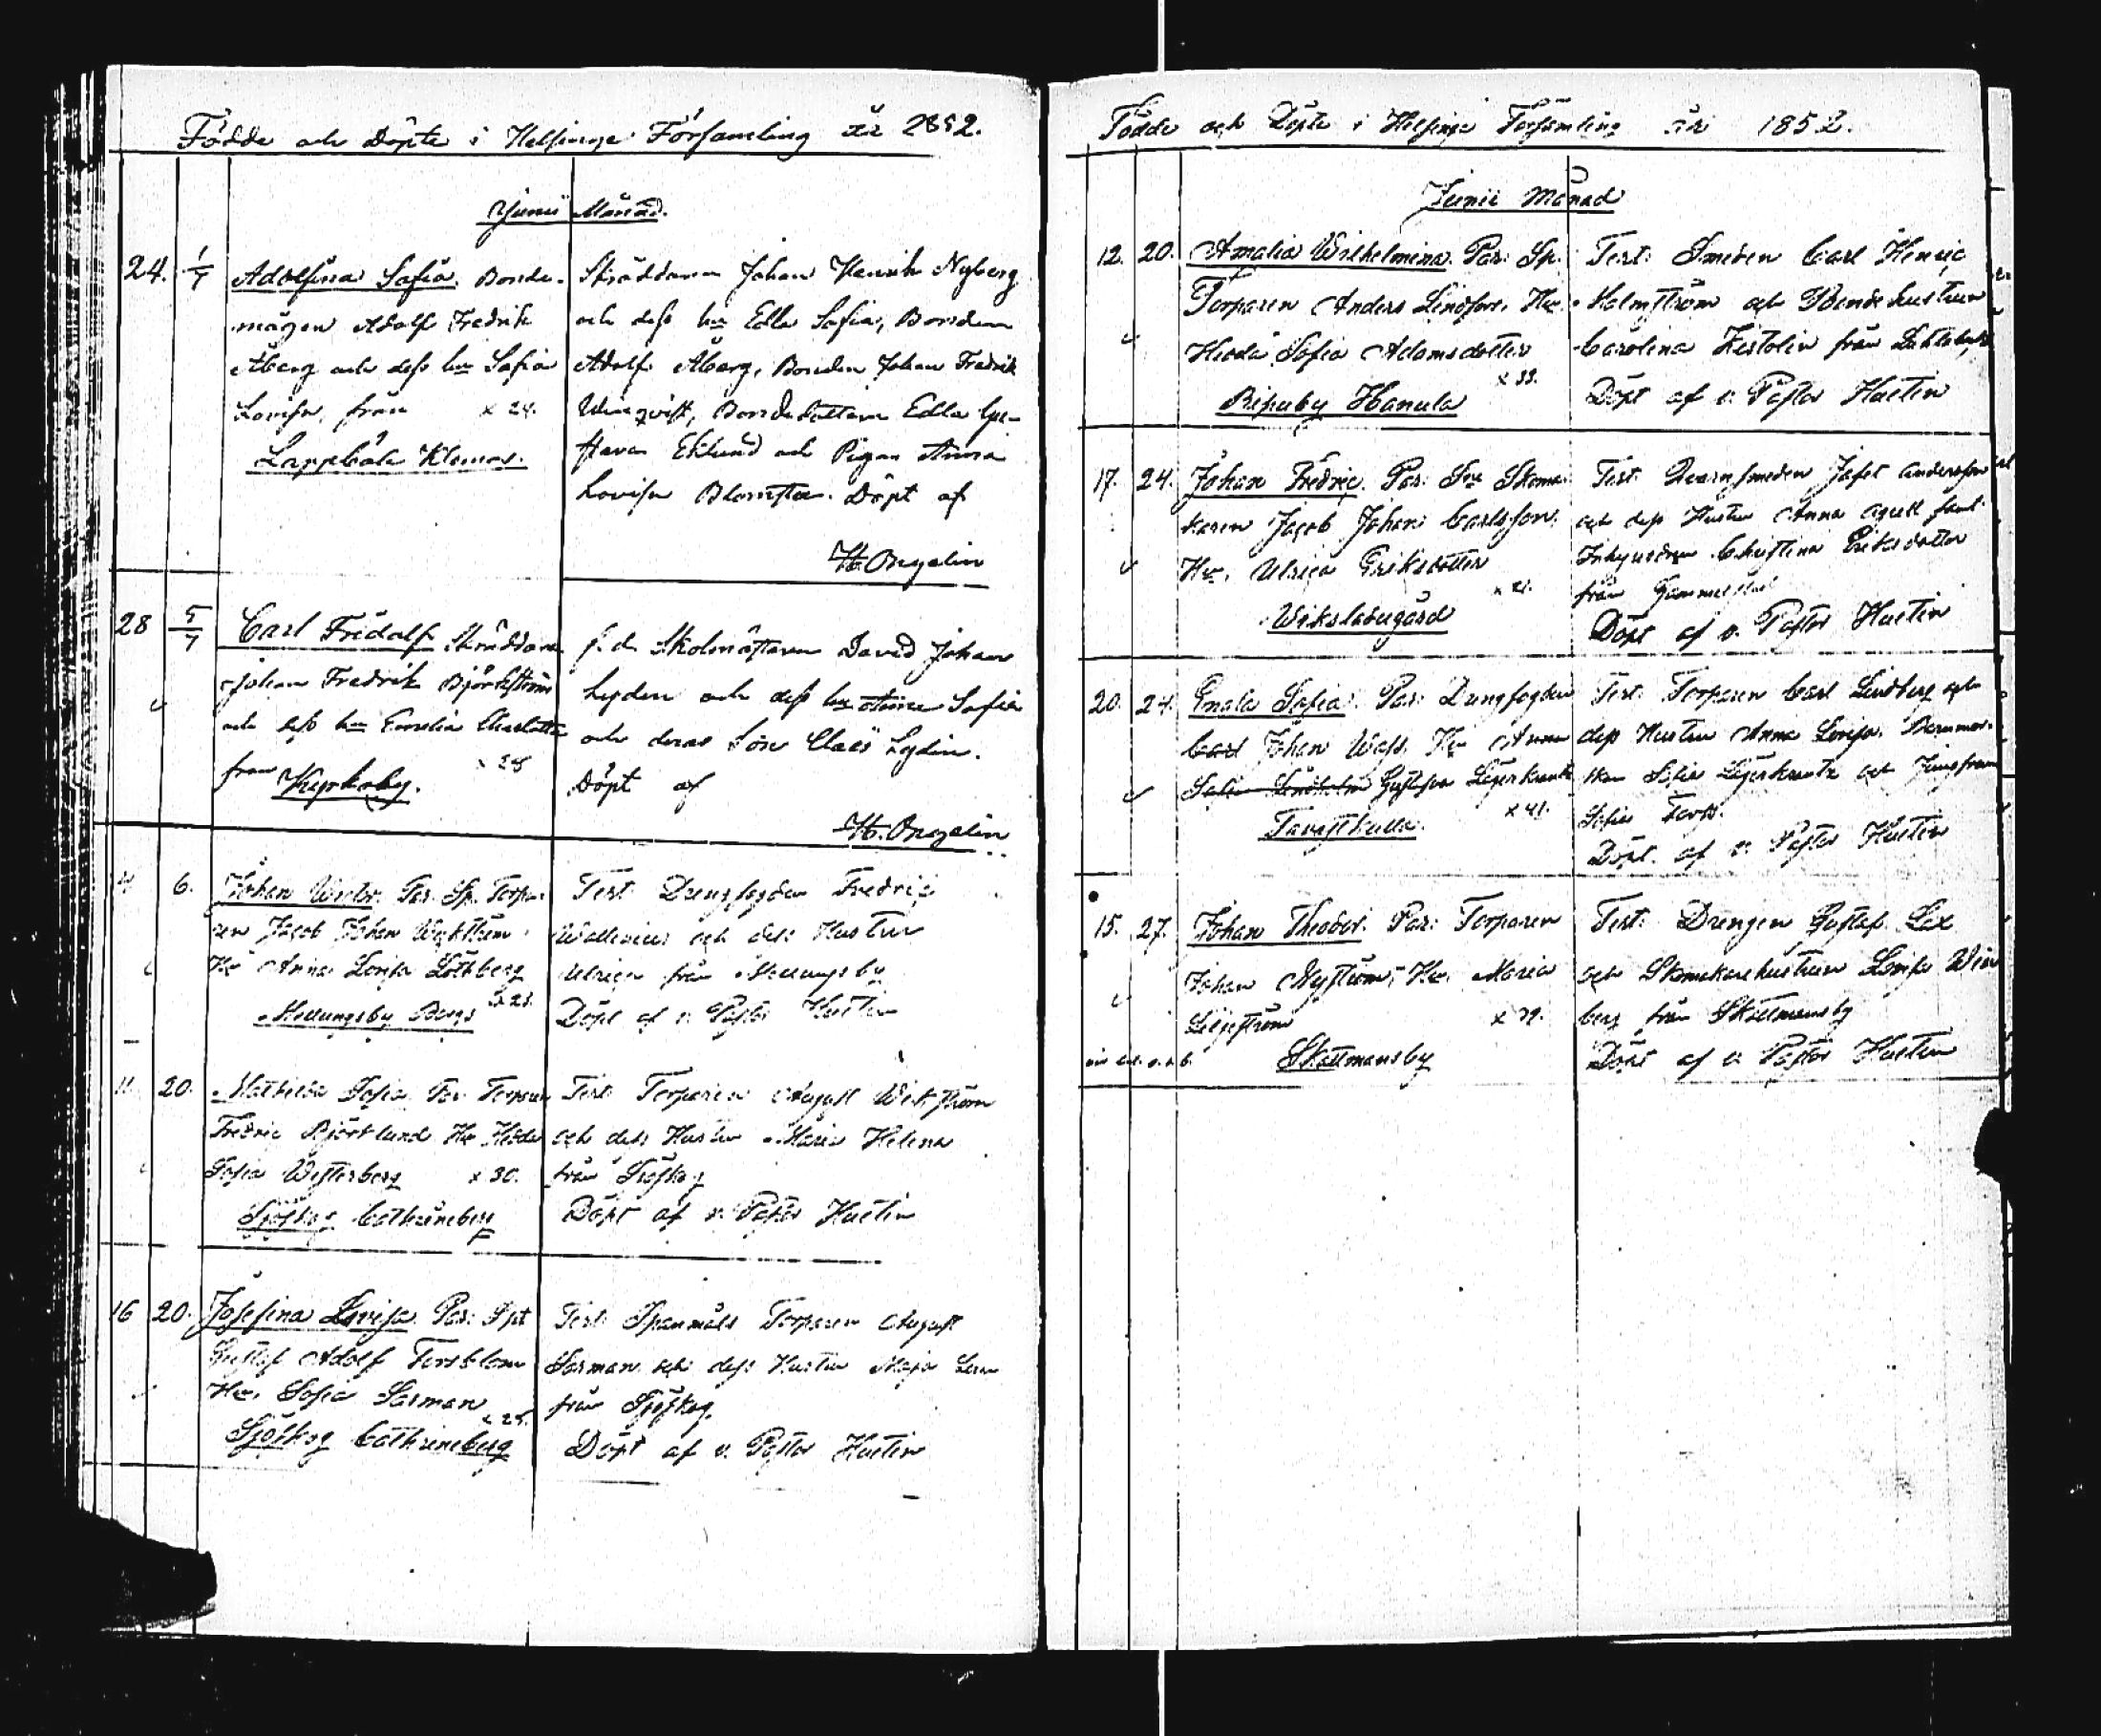 Födde och Döpte i Helsinge Församling år 1852.
Junii Månad.
24. 1/7 Adolfina Sofia. Bonde-
mågen Adolf Fredrik
Åberg och dess hu Sofia
Lovisa, från x 24.
Lappböle Klemas.
Skräddaren Johan Henrik Nyberg
och dess hu Edla Sofia, Bonden
Adolf Åberg, Bonden Johan Fredrik
Winqvist, Bondedottern Edla Gu-
stava Eklund och Pigan Anna
Lovisa Blomster. Döpt af
28 5/7 Carl Fridolf Skräddaren
Johan Fredrik Björkström
och dess hu Emelia Charlotta
från x 28
Kyrkoby.
f. d. Skolmästaren David Johan
Lydén och dess hu Anna Sofia
och deras Son Claës Lydén.
Döpt af
4 6. Johan Par. Sp. Torpa-
ren Jacob Johan
Hu Anna Lovisa Löthberg
Mellungsby x 23.
Test: Drengfogden Fredric
Wallenius och dess Hustru
Ulrica från Mellungsby
Döpt af v. Pastor Hustin
11. 20. Mathilda Sofia Par. Torparen
Fredric Björklund Hu Heda
Sofia Westerberg x 30.
Sjöskog Cathrineberg
Test: Torparen August Wikström
och dess Hustru Maria Helena
från Sjöskog
Döpt af v. Pastor Hustin
16 20. Josefina Lovisa. Par: Spt
Gustaf Adolf Forsblom
Hu. Sofia Sarman
x 25.
Sjöskog Cathrineberg
Test: Spanmåls Torparen August
Sarman och dess Hustru Maja Lena
från Sjöskog.
Döpt af v. Pastor Hustin
Födde och Döpte i Helsinge Församling år 1852.
Junii Månad
12. 20. Amalia Wilhelmina. Par: Sp.
Torparen Anders Lindfors. Hu.
Heda Sofia Adamsdotter
x 33.
Ripuby Hanula
Test: Smeden Carl Henric
Holmström och Bondehustrun
Carolina från
Döpt af v. Pastor Hustin
17. 24. Johan Fredric. Par: Skoma-
karen Jacob Johan Carlsson.
Hu. Ulrica Eriksdotter
x 21.
Wikslatugård
Test: Qvarnsmeden Jafet Andersson
och dess Hustru Anna Agull samt
Inhysesdrn Christina Eriksdotter
från Gammelstad
Döpt af v. Pastor Hustin
20. 24. Sofia. Par: Drengfogden
Carl Johan Hu Anna
Gustafva Lägerkrantz
x 41.
Tavastkulla.
Test: Torparen Carl Lindberg och
dess Hustru Anna Lovisa. Barnmor-
skan Sofia Lägerkrantz och Jungfrun
Sofia
Döpt. af v. Pastor Hustin
15. 27. Johan Theodor. Par: Torparen
Johan Nyström, Hu. Maria
Liljeström x 39.
Skattmansby
Test: Drengen Gustaf Lax
och Skomakarehustrun Lovisa Win
berg från Skattmansby
Döpt af v. Pastor Hustin